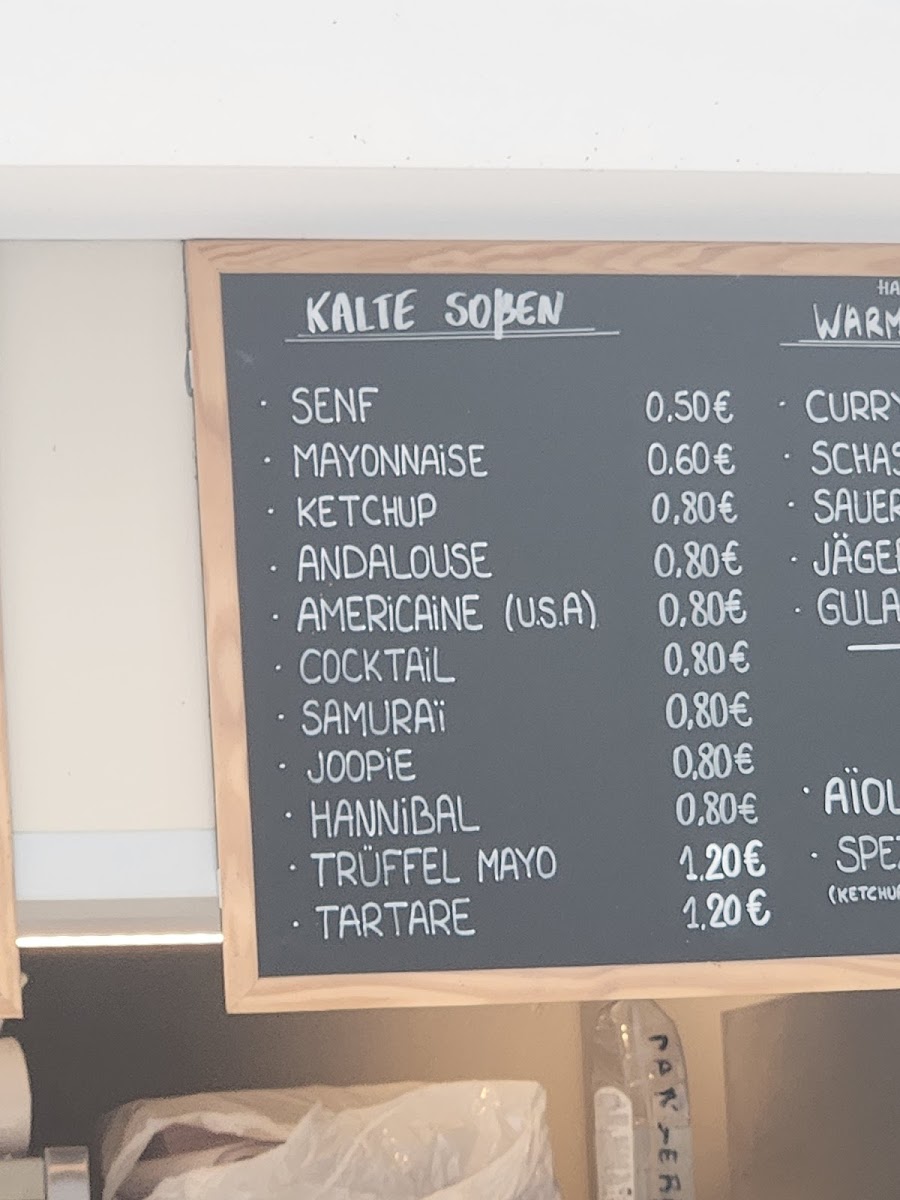 KALTE SOßEN
· SENF 0.50€
· MAYONNAiSE 0.60€
· KETCHUP 0.80€
· ANDALOUSE 0.80€
· AMERiCAiNE (U.S.A) 0,80€
· COCKTAiL 0,80€
· SAMURAï 0,80€
· JOOPiE 0,80€
· HANNiBAL 0,80€
· TRÜFFEL MAYO 1.20€
· TARTARE 1.20€
HA
WARM
· CURRY
· SCHAS
· SAUER
· JÄGE
· GULA
· AÏOL
· SPEZ
(KETCHU